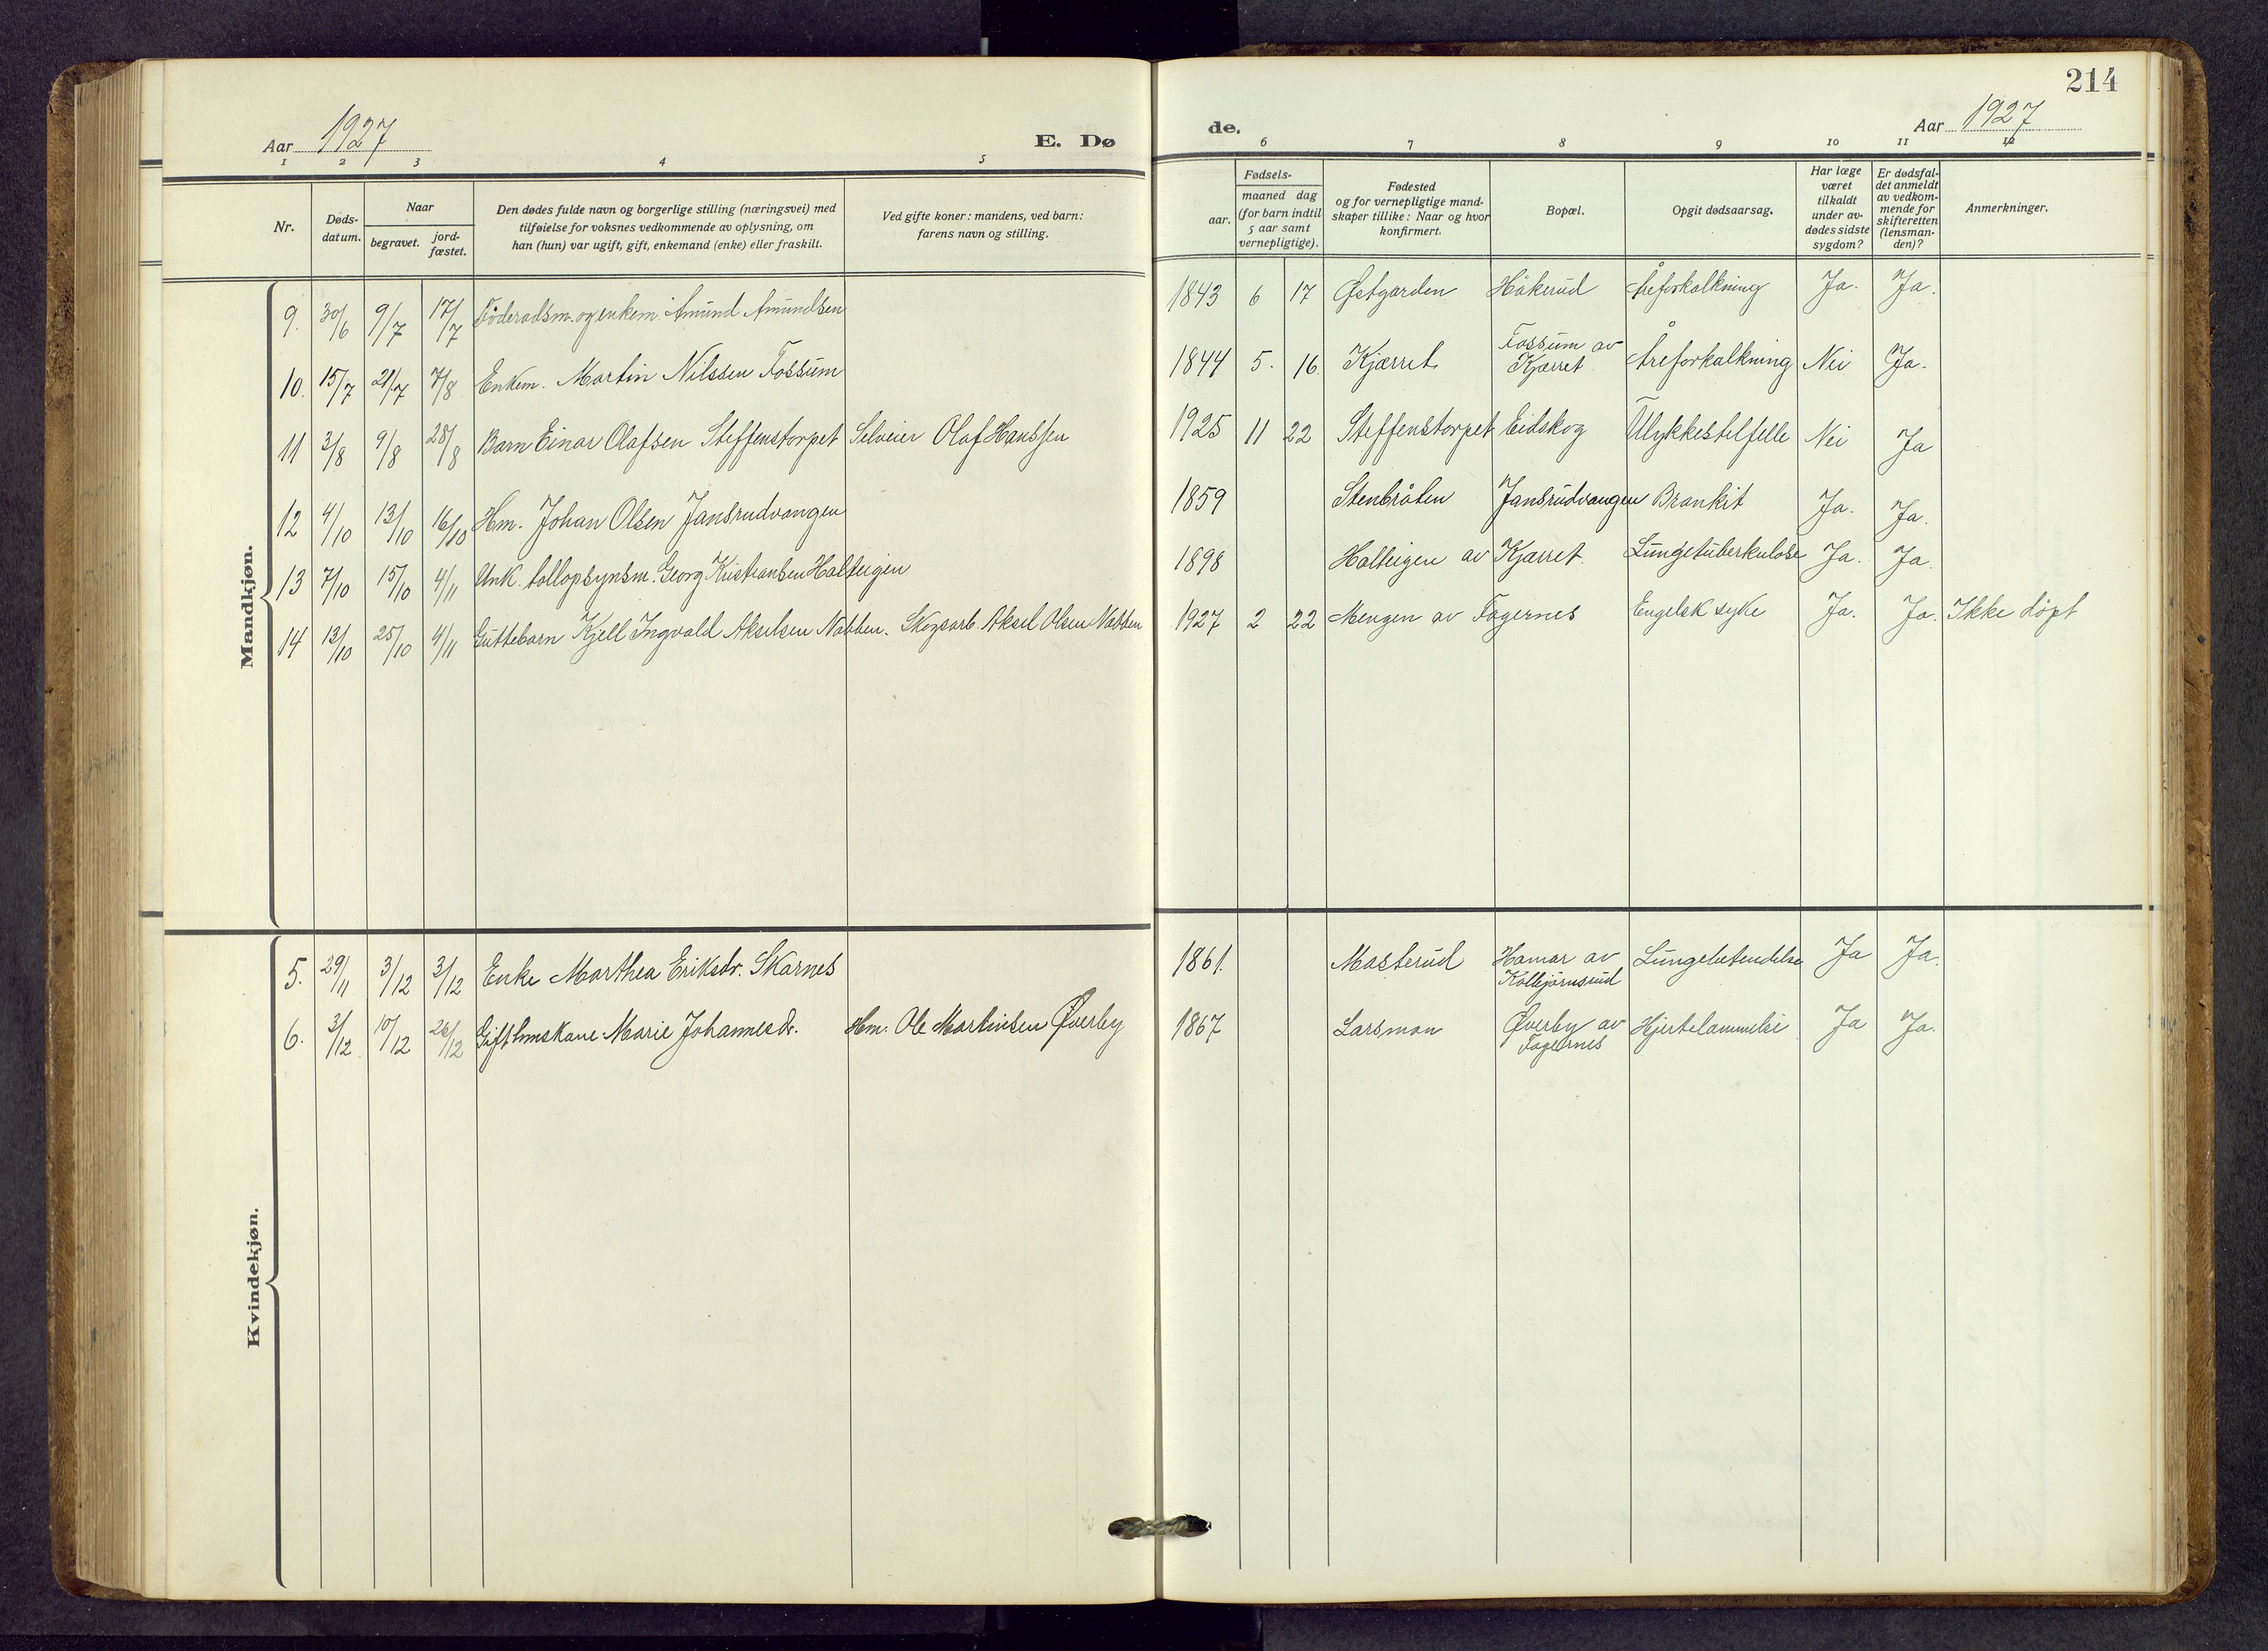 214
Aar 1927
E. Dø
de.
Aar 1927
1 2 3 4 5
6 7 8 9 10 11 12
Nr.
Døds-
datum.
Naar
begravet.
jord-
fæstet.
Den dødes fulde navn og borgerlige stilling (næringsvei) med
tilføielse for voksnes vedkommende av oplysning, om
han (hun) var ugift, gift, enkemand (enke) eller fraskilt.
Ved gifte koner: mandens, ved barn:
farens navn og stilling.
Fødsels-
aar.
maaned dag
(for barn indtil
5 aar samt
vernepligtige).
Fødested
og for vernepligtige mand-
skaper tillike: Naar og hvor
konfirmert.
Bopæl.
Opgit dødsaarsag.
Har læge
været
tilkaldt
under av-
dødes sidste
sygdom?
Er dødsfal-
det anmeldt
av vedkom-
mende for
skifteretten
(lensman-
den)?
Anmerkninger.
Mandkjøn.
9. 30/6 9/7 17/7 Föderadsm. og enkem. Amund Amundsen 1843 6 17 Østgarden Håkerud Åreforkalkning Ja. Ja.
10. 15/7 21/7 7/8 Enkem. Martin Nilssen Fossum 1844 5. 16. Kjærret Fossum av
Kjærret Åreforkalkning Nei Ja.
11 3/8 9/8 28/8 Barn Einar Olafsen Steffenstorpet Selveier Olaf Hanssen 1925 11 22 Steffenstorpet Eidskog Ulykkestilfelle Nei Ja
12 4/10 13/10 16/10 Hm. Johan Olsen Jansrudvangen 1859 Stenbråten Jansrudvangen Brankit Ja. Ja.
13 7/10 15/10 4/11 Unk. tollopsynsm. Georg Kristiansen Holteigen 1898 Holteigen av Kjærret. Lungetuberkulose Ja. Ja.
14 13/10 25/10 4/11 Guttebarn Kjell Ingvald Akselsen Nabben. Skogsarb. Aksel Olsen Nabben 1927 2 22 Mengen av Fagernes Engelsk syke Ja. Ja. Ikke döpt
Kvindekjøn.
5. 29/11 3/12 3/12 Enke Marthea Eriksdr. Skarnes 1861. Masterud Hamar av
Kolbjörnsrud Lungebetendelse Ja Ja.
6. 3/12 10/12 26/12 Gift hmskone Marie Johannesdr. Hm. Ole Martinsen Øverby 1867 Larsmon Øverby av
Fagernes Hjertelammelse Ja Ja.